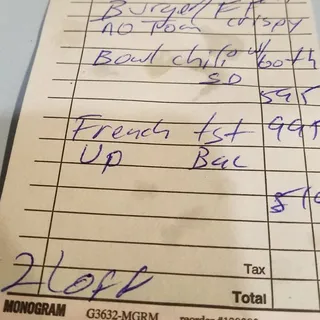 Burger/FF
no Tom crispy
Bowl chili w/ both
SD
595
French tst 995
Up Bac
Tax
Total
MONOGRAM G3632-MGRM